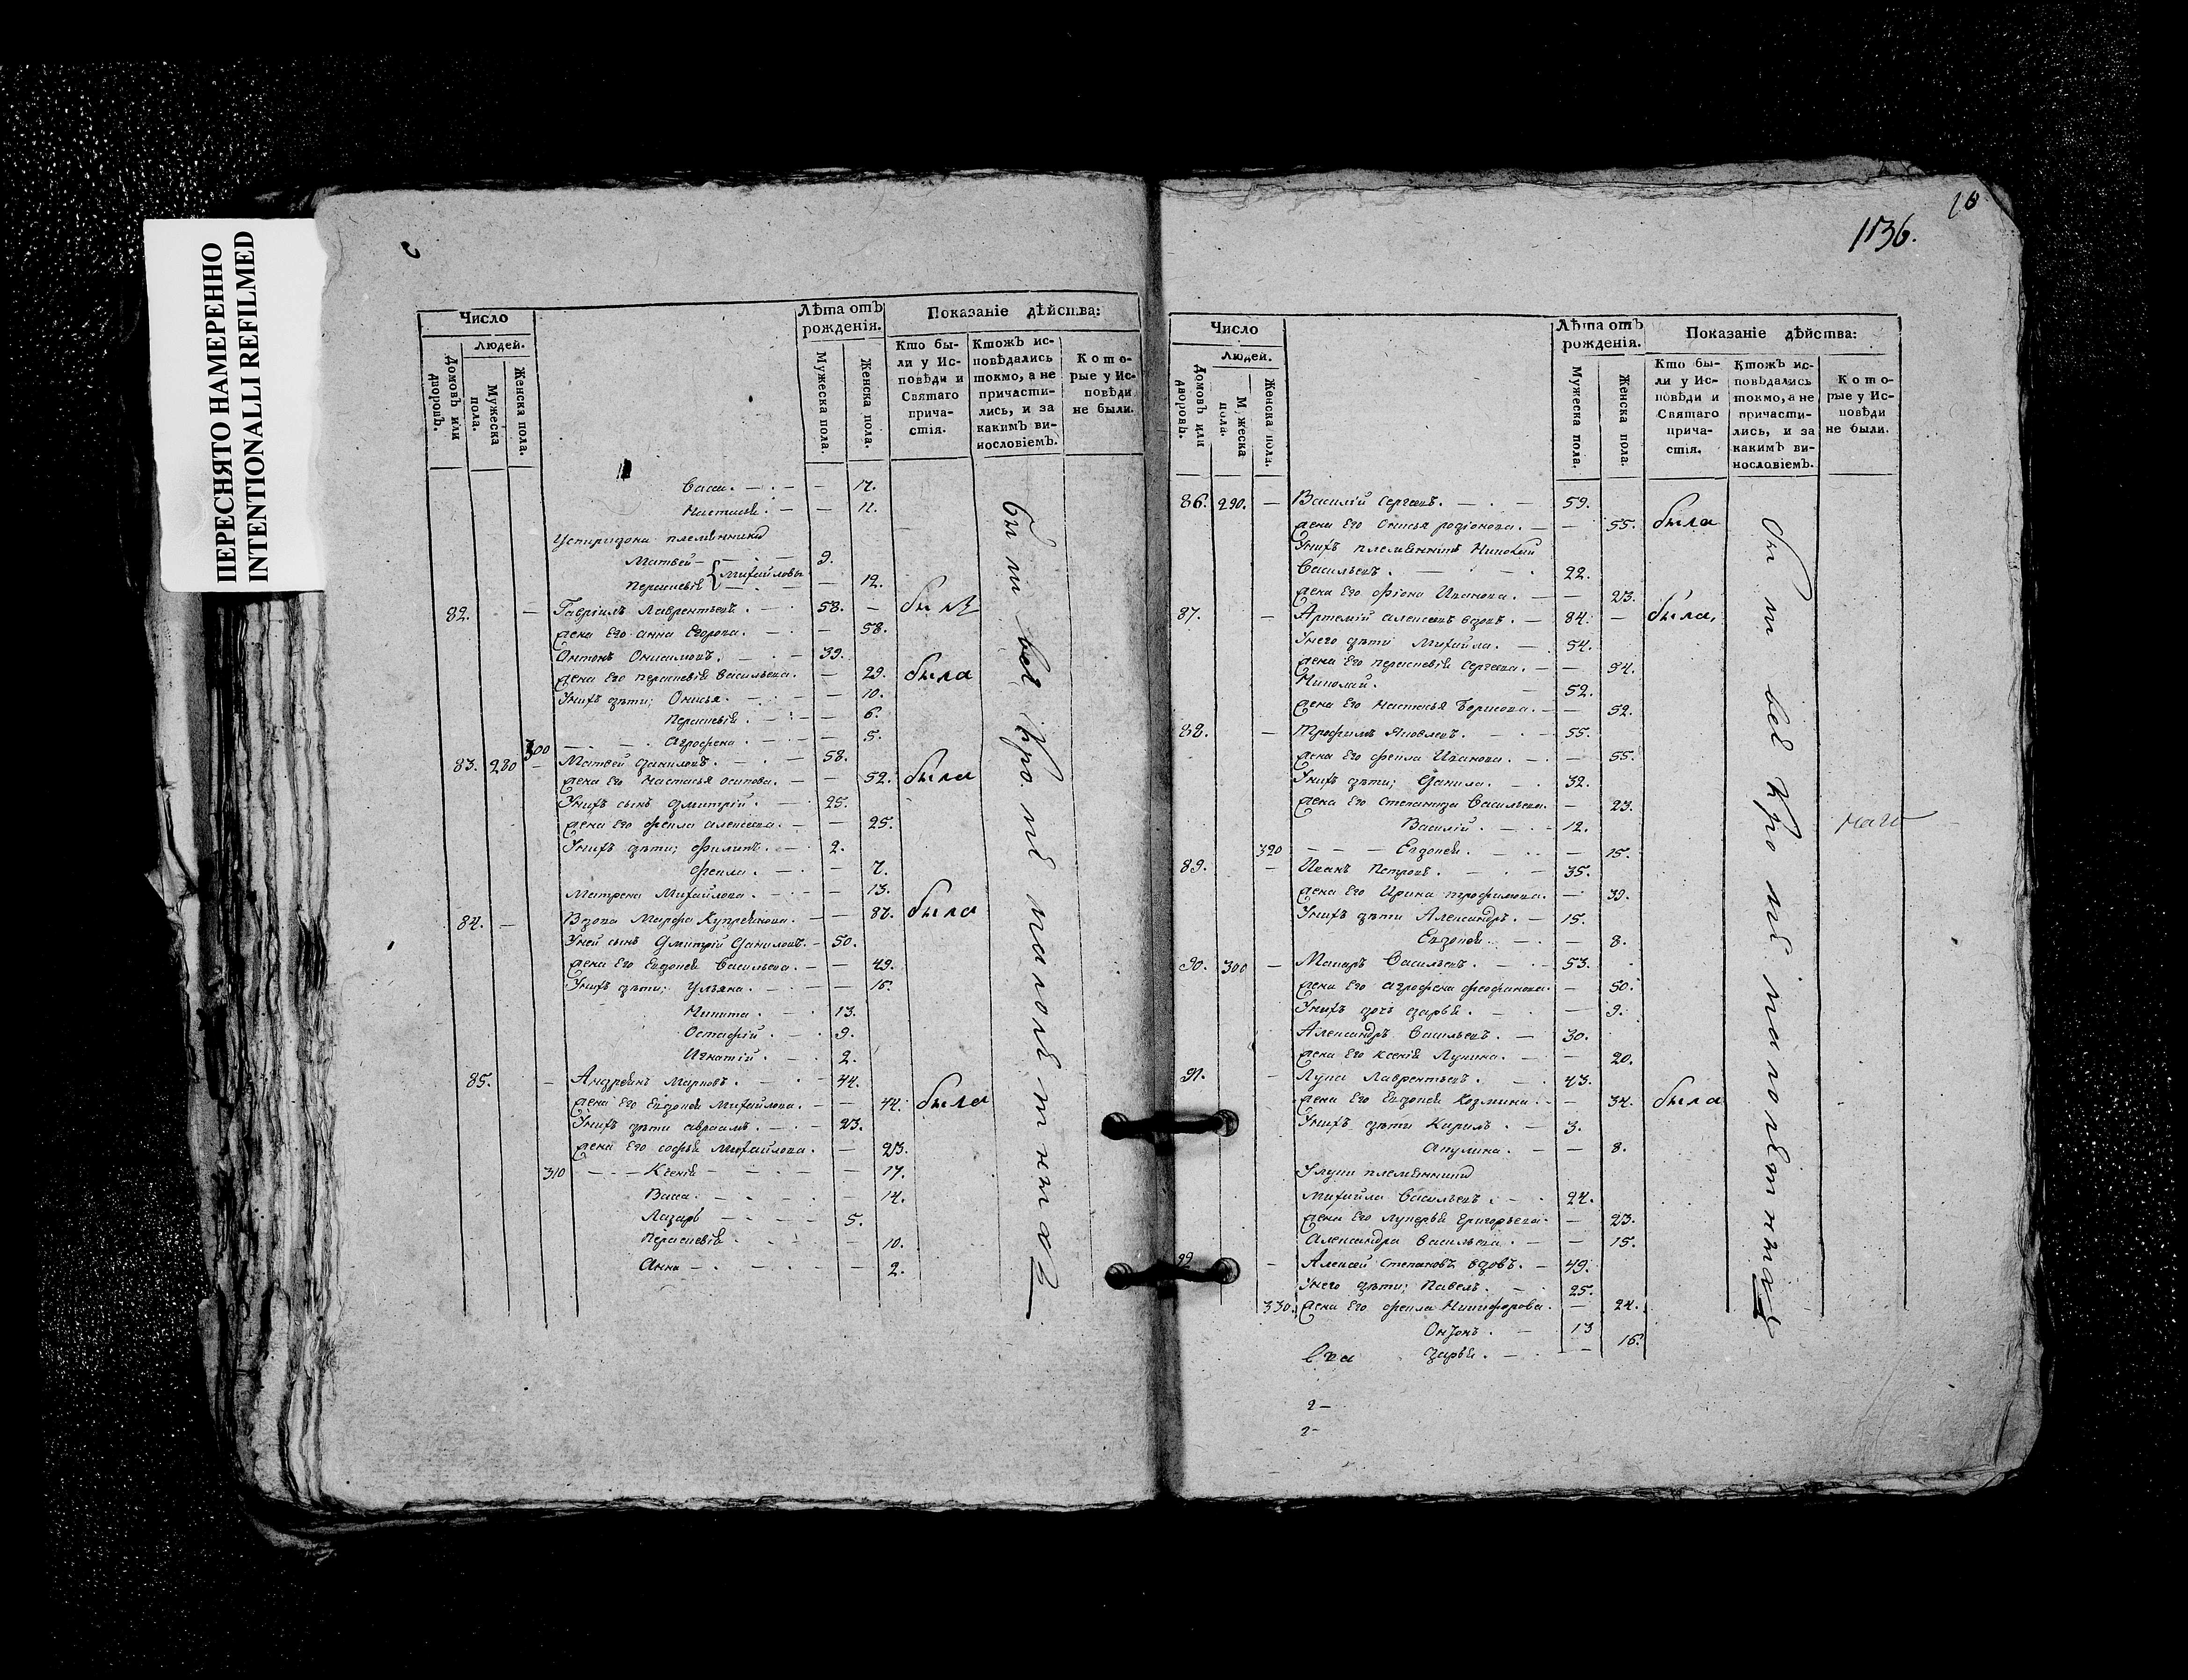 ПЕРЕСНЯТО НАМЕРЕННО
INTENTIONALLI REFILMED
Число
Людей.
Домовъ или дворовъ.
Мужеска пола.
Женска пола.
Лѣта отъ рожденія.
Мужеска пола.
Женска пола.
Показаніе дѣйства:
Кто были у Исповѣди и Святаго причастія.
Ктожъ исповѣдались токмо, а не причастились, и за какимъ винословіемъ.
Которые у Исповѣди не были.
Васса. — 17.
Настасья. — 11.
Успиридона племянники
Матвей — 9.
Михайловы
Параскевія — 12.
82. — Гавріилъ Лаврентьевъ. 58. —
жена Его анна Егорова. — 58.
Антонъ Онисимовъ. 39.
жена Его параскевія Васильева. — 29. была
Унихъ дѣти; Онисья. — 10.
Параскевія. — 6.
300 Агрофена. — 5.
83. 280 — Матвей даниловъ. 58.
жена Его Настасья осипова. — 52. была
Унихъ сынъ дмитрій. 25.
жена Его фекла алексеева. — 25.
Унихъ дѣти; филипъ. 2.
фекла. — 7.
Матрена Михайлова. — 13.
84. — Вдова Марфа Купреянова. — 87. была
Уней сынъ Дмитрій Даниловъ. 50.
жена Его Евдокея Васильева. — 49.
Унихъ дѣти; Ульяна. — 16.
Никита. 13.
Остафій. 9.
Игнатій. 2.
85. — Андреянъ Марковъ. 44.
жена Его Евдокея Михайлова. — 44. была
Унихъ дѣти авраамъ. 23.
жена Его софья Михайлова. — 23.
310 — Ксенія — 17.
Васса. — 14.
Лазарь 5.
Параскевія — 10.
Анна — 2.
были всѣ Кромѣ малолѣтныхъ
1136.
Число
Людей.
Домовъ или дворовъ.
Мужеска пола.
Женска пола.
Лѣта отъ рожденія.
Мужеска пола.
Женска пола.
Показаніе дѣйства:
Кто были у Исповѣди и Святаго причастія.
Ктожъ исповѣдались токмо, а не причастились, и за какимъ винословіемъ.
Которые у Исповѣди не были.
86. 290. — Василій Сергеевъ. 59.
жена Его Онисья родіонова. — 55. была
Унихъ племянникъ Николай
Васильевъ. 22.
жена Его Ивановa. — 23.
87. — Артемій алексеевъ вдовъ. 84. — была,
Унего дѣти Михайла. 54.
жена Его параскевія Сергеева. — 54.
Николай. 52.
жена Его Настасья Борисова. — 52.
88. — Трофимъ Яковлевъ. 55.
жена Его фекла Иванова. — 55.
Унихъ дѣти; Данила. 32.
жена Его Степанида Васильева. — 23.
Василій. 12.
320 — Евдокея. — 15.
89. — Иванъ Петровъ. 35.
жена Его Ирина трофимова. — 39.
Унихъ дѣти Александръ. 15.
Евдокея. — 8.
90. 300 — Макаръ Васильевъ. 53.
жена Его агрофена феофанова. — 50.
Унихъ дочь дарья. — 9.
Александръ Васильевъ. 30.
жена Его ксенія Лукина. — 20.
91. — Лука Лаврентьевъ. 43.
жена Его Евдокея Козмина. — 34. была
Унихъ дѣти Карилъ. 3.
Акулина. — 8.
Улуки племянники
Михайла Васильевъ. 24.
жена Его лукерья григорьева. — 23.
Александра Васильева. — 15.
92 — Алексей Степановъ вдовъ. 49.
Унего дѣти; Павелъ. 25.
330. жена Его фекла Никифорова. — 24.
13
дарья. — 16.
2 —
2 —
были всѣ Кромѣ малолѣтныхъ